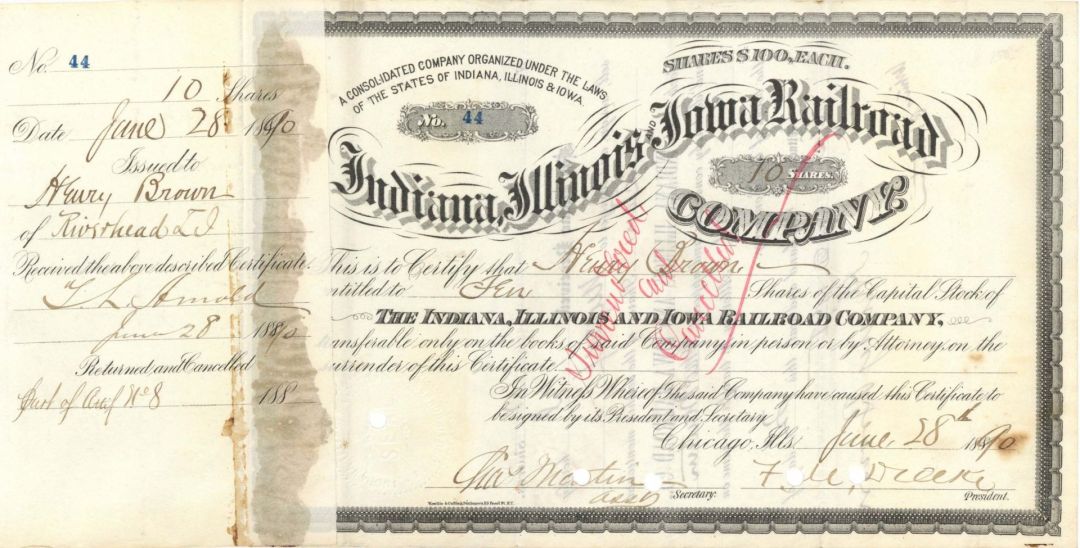 No. 44
10 Shares
Date June 28 1890
Issued to
Henry Brown
of Riverhead L I
Received the above described Certificate.
T L Arnold
June 28 1890
Returned and Cancelled
Part of No 8 188
A CONSOLIDATED COMPANY ORGANIZED UNDER THE LAWS
OF THE STATES OF INDIANA, ILLINOIS & IOWA.
SHARES $100, EACH.
No. 44
Indiana, Illinois AND Iowa Railroad
10 SHARES.
COMPANY
This is to Certify that Henry Brown
entitled to Ten Shares of the Capital Stock of
THE INDIANA, ILLINOIS AND IOWA RAILROAD COMPANY,
transferable only on the books of said Company in person or by Attorney, on the
surrender of this Certificate.
Surrendered
and
Cancelled
In Witness Whereof, The said Company have caused this Certificate to
be signed by its President and Secretary
Chicago, Ills. June 28th 1890
Chas Martin
asst Secretary.
F. M. Drake
President.